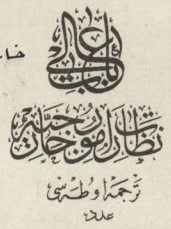 باب عالی
نظارت امور خارجیه
ترجمه اوطه‌سی
عدد